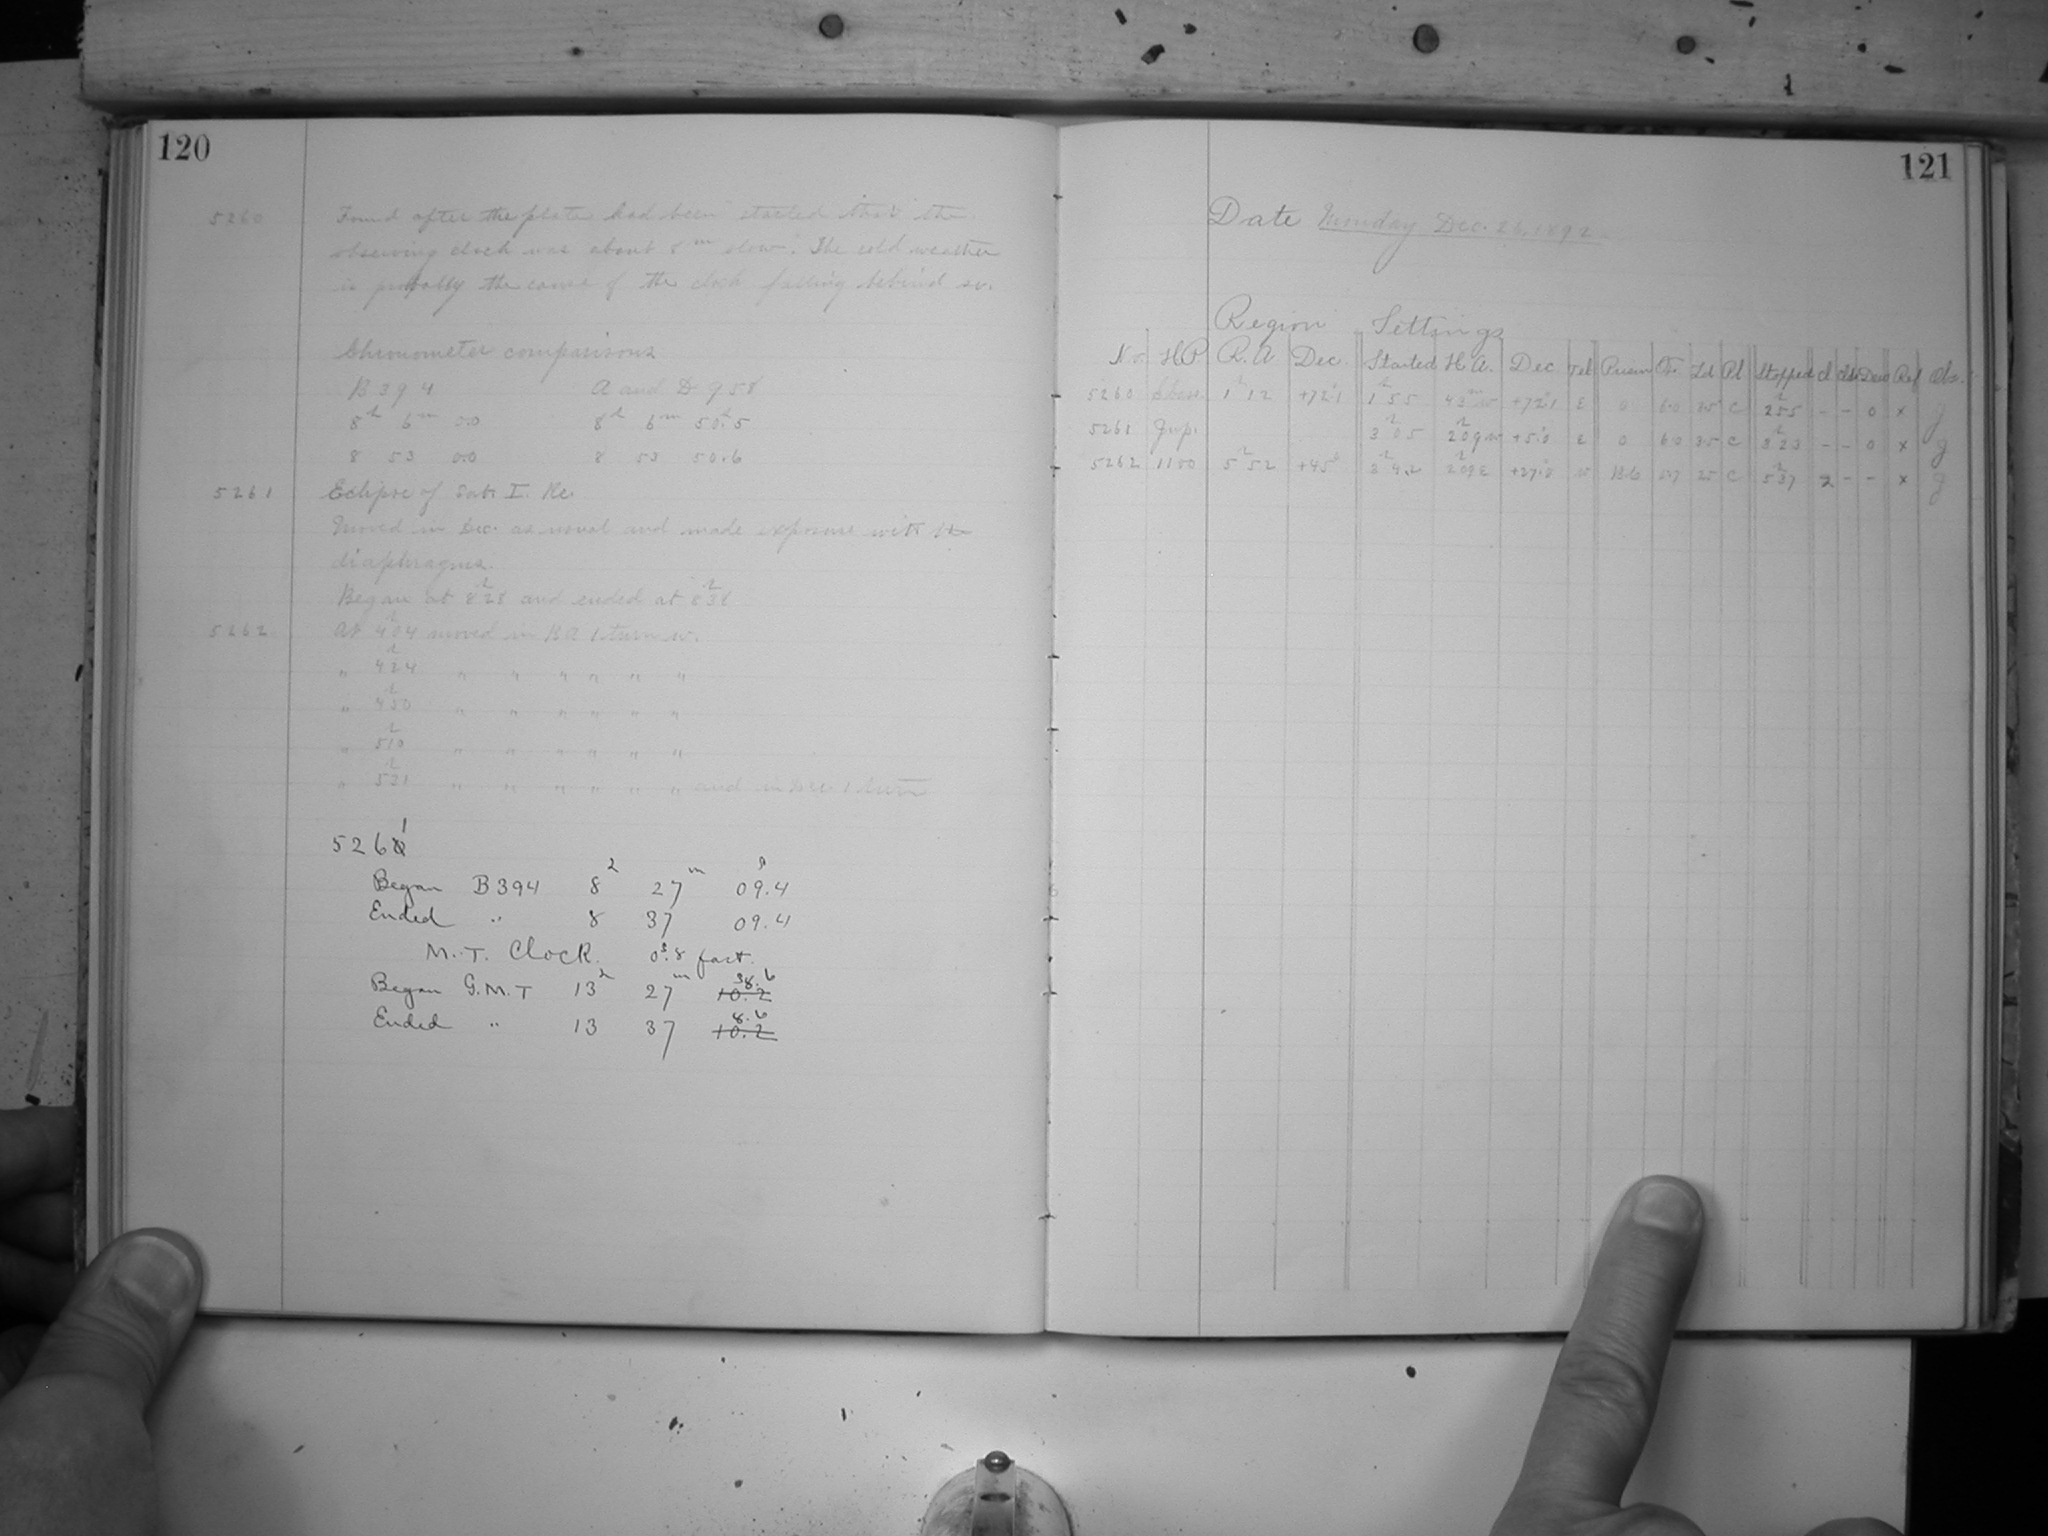 120
5260 Found after the plate had been started that the
observing clock was about 8m slow. The cold weather
is probably the cause of the clock falling behind so.
Chronometer comparisons
B 394 A and D 958
8h 6m 0.0 8h 6m 50s.5
8 53 0.0 8 53 50.6
5261 Eclipse of Sat. I. Re.
Moved in Dec. as usual and made exposure with the
diaphragms.
Began at 8h28 and ended at 8h38
5262 At 4h04 moved in R A 1 turn w.
" 4h24 " " " " " "
" 4h50 " " " " " "
" 5h10 " " " " " "
" 5h31 " " " " " " and in Dec. 1 turn
5261
Began B394 8h 27m 09s.4
Ended " 8 37 09.4
M.T. Clock. 0s.8 fast.
Began G.M.T 13h 27m 10.2 s8.6
Ended " 13 37 10.2 8.6
121
Date Monday Dec. 26, 1892.
Region Settings
No. H.P. R.A Dec. Started H.A. Dec. Tel Ld Pl Stopped Cl Dew Ref Obs.
5260 1h12 +72°1 1h55 43m w +72°1 E 0 60 35 C 2h55 - - 0 x g
5261 Jup. 3h05 2h09 w +5°0 E 0 60 35 C 3h23 - - 0 x g
5262 1180 5h52 +45° 3h42 2h09 E +37°8 w 18.6 C 5h37 2 - - x g